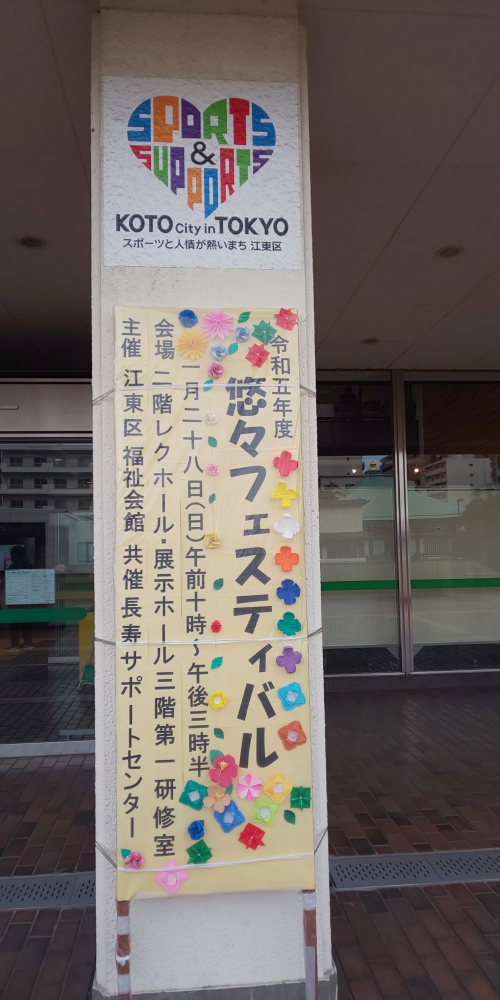 SPORTS
&
SUPPORTS
KOTO City in TOKYO
スポーツと人情が熱いまち 江東区
令和五年度
悠々フェスティバル
一月二十八日(日)午前十時~午後三時半
会場 二階レクホール・展示ホール三階第一研修室
主催 江東区 福祉会館 共催長寿サポートセンター